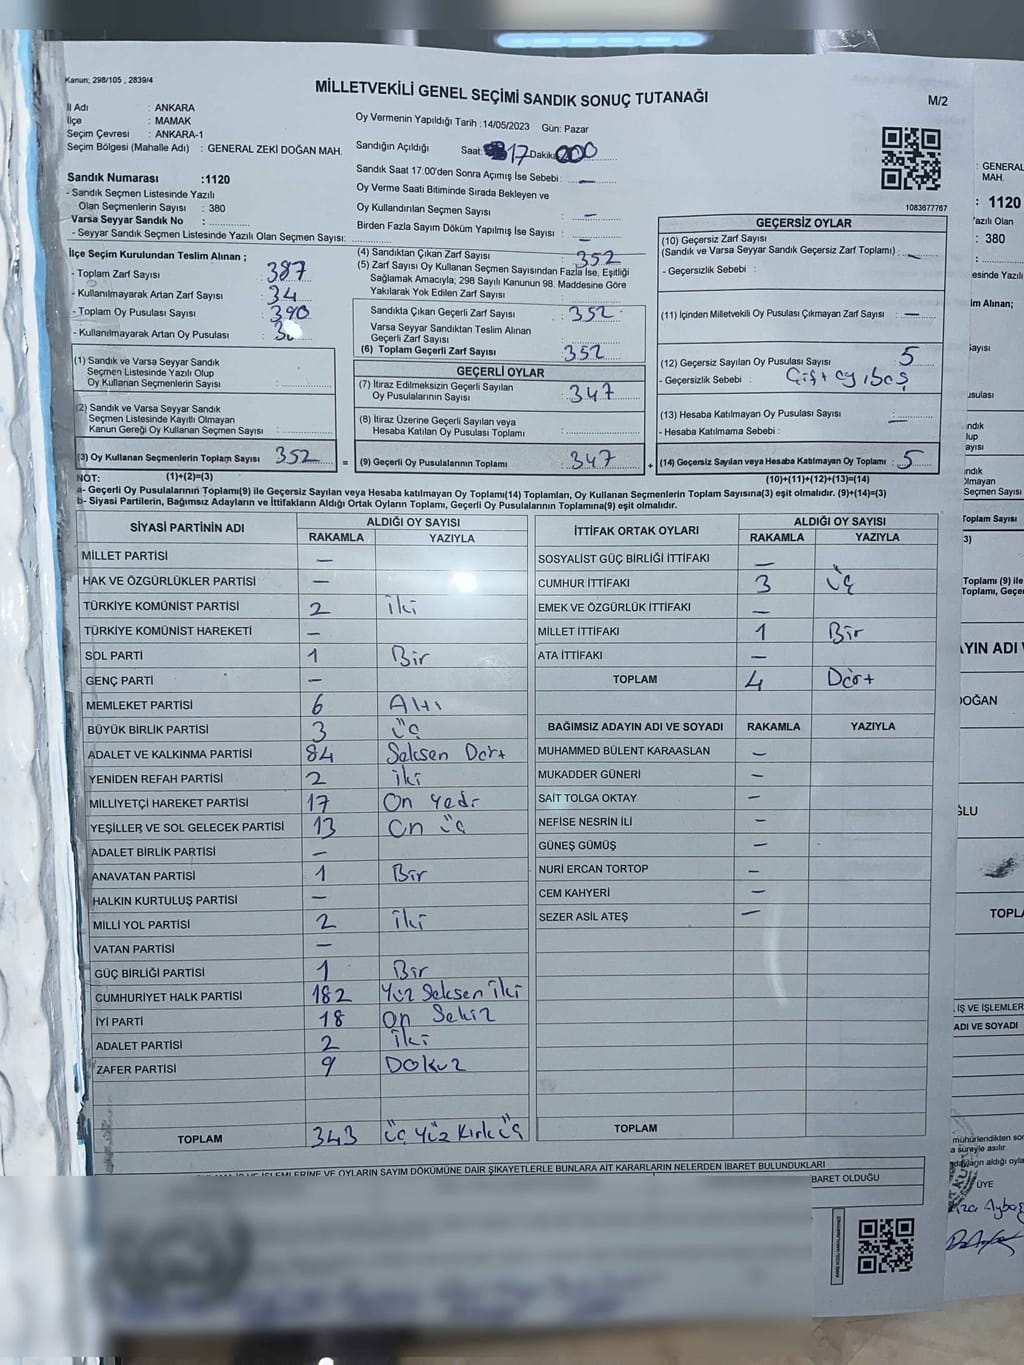 Kanun; 298/105 , 2839/4
MİLLETVEKİLİ GENEL SEÇİMİ SANDIK SONUÇ TUTANAĞI
M/2
İl Adı : ANKARA
İlçe : MAMAK
Seçim Çevresi : ANKARA-1
Seçim Bölgesi (Mahalle Adı) : GENERAL ZEKİ DOĞAN MAH.
Oy Vermenin Yapıldığı Tarih :14/05/2023 Gün: Pazar
Sandığın Açıldığı Saat: 17 Dakika
Sandık Saat 17.00'den Sonra Açımış İse Sebebi : —
Oy Verme Saati Bitiminde Sırada Bekleyen ve
Oy Kullandırılan Seçmen Sayısı : —
Birden Fazla Sayım Döküm Yapılmış İse Sayısı : —
1083677767
Sandık Numarası :1120
- Sandık Seçmen Listesinde Yazılı
Olan Seçmen Sayısı : 380
Varsa Seyyar Sandık No :
- Seyyar Sandık Seçmen Listesinde Yazılı Olan Seçmen Sayısı:
İlçe Seçim Kurulundan Teslim Alınan ;
- Toplam Zarf Sayısı : 387
- Kullanılmayarak Artan Zarf Sayısı : 34
- Toplam Oy Pusulası Sayısı : 390
- Kullanılmayarak Artan Oy Pusulası :
(1) Sandık ve Varsa Seyyar Sandık
Seçmen Listesinde Yazılı Olup
Oy Kullanan Seçmenlerin Sayısı :
(2) Sandık ve Varsa Seyyar Sandık
Seçmen Listesinde Kayıtlı Olmayan
Kanun Gereği Oy Kullanan Seçmen Sayısı :
(3) Oy Kullanan Seçmenlerin Toplam Sayısı : 352
(1)+(2)=(3)
(4) Sandıktan Çıkan Zarf Sayısı : 352
(5) Zarf Sayısı Oy Kullanan Seçmen Sayısından Fazla İse, Eşitliği
Sağlamak Amacıyla; 298 Sayılı Kanunun 98. Maddesine Göre
Yakılarak Yok Edilen Zarf Sayısı :
Sandıkta Çıkan Geçerli Zarf Sayısı : 352
Varsa Seyyar Sandıktan Teslim Alınan
Geçerli Zarf Sayısı :
(6) Toplam Geçerli Zarf Sayısı : 352
GEÇERLİ OYLAR
(7) İtiraz Edilmeksizin Geçerli Sayılan
Oy Pusulalarının Sayısı : 347
(8) İtiraz Üzerine Geçerli Sayılan veya
Hesaba Katılan Oy Pusulası Toplamı :
= (9) Geçerli Oy Pusulalarının Toplamı : 347
GEÇERSİZ OYLAR
(10) Geçersiz Zarf Sayısı
(Sandık ve Varsa Seyyar Sandık Geçersiz Zarf Toplamı) : —
- Geçersizlik Sebebi :
(11) İçinden Milletvekili Oy Pusulası Çıkmayan Zarf Sayısı : —
(12) Geçersiz Sayılan Oy Pusulası Sayısı : 5
- Geçersizlik Sebebi :
(13) Hesaba Katılmayan Oy Pusulası Sayısı : —
- Hesaba Katılmama Sebebi :
+ (14) Geçersiz Sayılan veya Hesaba Katılmayan Oy Toplamı : 5
(10)+(11)+(12)+(13)=(14)
NOT:
a- Geçerli Oy Pusulalarının Toplamı(9) ile Geçersiz Sayılan veya Hesaba katılmayan Oy Toplamı(14) Toplamları, Oy Kullanan Seçmenlerin Toplam Sayısına(3) eşit olmalıdır. (9)+(14)=(3)
b- Siyasi Partilerin, Bağımsız Adayların ve İttifakların Aldığı Oy Sayıların Toplamı, Geçerli Oy Pusulalarının Toplamına(9) eşit olmalıdır.
SİYASİ PARTİNİN ADI ALDIĞI OY SAYISI
RAKAMLA YAZIYLA
MİLLET PARTİSİ —
HAK VE ÖZGÜRLÜKLER PARTİSİ —
TÜRKİYE KOMÜNİST PARTİSİ 2 iki
TÜRKİYE KOMÜNİST HAREKETİ —
SOL PARTİ 1 Bir
GENÇ PARTİ —
MEMLEKET PARTİSİ 6 Altı
BÜYÜK BİRLİK PARTİSİ 3 üç
ADALET VE KALKINMA PARTİSİ 84 Seksen Dört
YENİDEN REFAH PARTİSİ 2 iki
MİLLİYETÇİ HAREKET PARTİSİ 17 On Yedi
YEŞİLLER VE SOL GELECEK PARTİSİ 13 On üç
ADALET BİRLİK PARTİSİ —
ANAVATAN PARTİSİ 1 Bir
HALKIN KURTULUŞ PARTİSİ —
MİLLİ YOL PARTİSİ 2 iki
VATAN PARTİSİ —
GÜÇ BİRLİĞİ PARTİSİ 1 Bir
CUMHURİYET HALK PARTİSİ 182 Yüz Seksen iki
İYİ PARTİ 18 On Sekiz
ADALET PARTİSİ 2 iki
ZAFER PARTİSİ 9 Dokuz
TOPLAM 343 üç Yüz Kırk üç
İTTİFAK ORTAK OYLARI ALDIĞI OY SAYISI
RAKAMLA YAZIYLA
SOSYALİST GÜÇ BİRLİĞİ İTTİFAKI —
CUMHUR İTTİFAKI 3 üç
EMEK VE ÖZGÜRLÜK İTTİFAKI —
MİLLET İTTİFAKI 1 Bir
ATA İTTİFAKI —
TOPLAM 4 Dört
BAĞIMSIZ ADAYIN ADI VE SOYADI RAKAMLA YAZIYLA
MUHAMMED BÜLENT KARAASLAN —
MUKADDER GÜNERİ —
SAİT TOLGA OKTAY —
NEFİSE NESRİN İLİ —
GÜNEŞ GÜMÜŞ —
NURİ ERCAN TORTOP —
CEM KAHYERİ —
SEZER ASİL ATEŞ —
TOPLAM
İŞLEMLERİNE VE OYLARIN SAYIM DÖKÜMÜNE DAİR ŞİKAYETLERLE BUNLARA AİT KARARLARIN NELERDEN İBARET BULUNDUKLARI
İBARET OLDUĞU
: GENERAL
MAH.
: 1120
: 380
Toplam Sayısı
Toplamı (9) ile
DOĞAN
ADI VE SOYADI
ÜYE